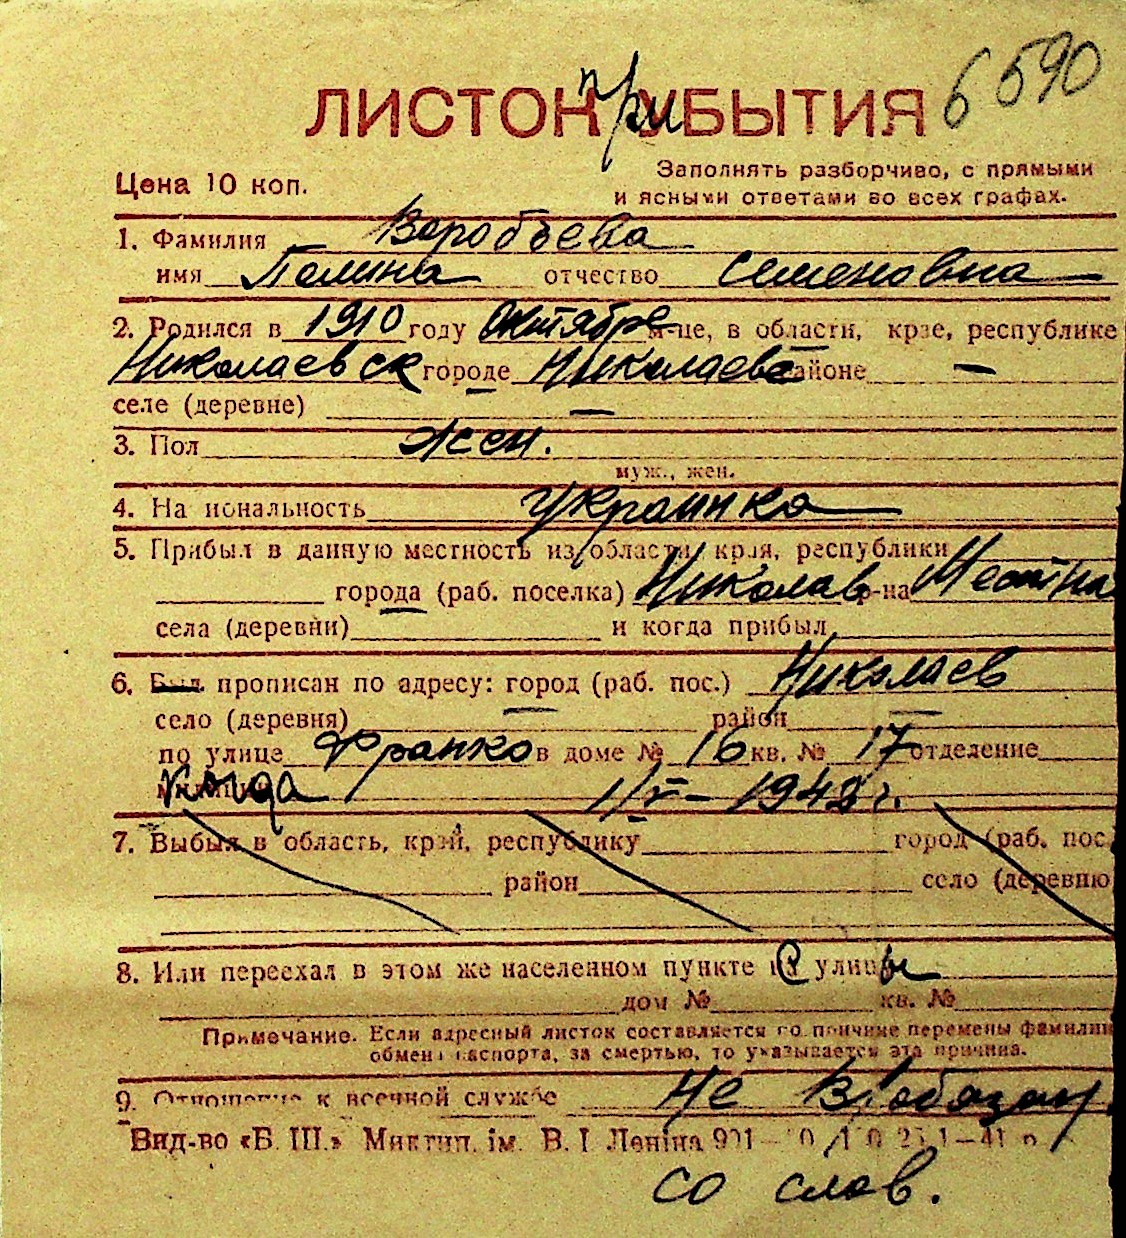 6590
ЛИСТОК при УБЫТИЯ
Цена 10 коп.
Заполнять разборчиво, с прямыми
и ясными ответами во всех графах.
1. Фамилия Воробьева
имя Полина отчество Семеновна
2. Родился в 1910 году Октябре м-це, в области, крае, республике
Николаевск городе Николаеве районе —
селе (деревне) —
3. Пол жен.
муж., жен.
4. Национальность украинка
5. Прибыл в данную местность из области, края, республики
города (раб. поселка) Николаев р-на Местная
села (деревни) и когда прибыл
6. Был прописан по адресу: город (раб. пос.) Николаев
село (деревня) район —
по улице Франко в доме № 16 кв. № 17 отделение
милиции когда 1/V – 1942 г.
7. Выбыл в область, край, республику город (раб. пос.
район село (деревню
8. Или переехал в этом же населенном пункте с улицы
дом № кв. №
Примечание. Если адресный листок составляется по причине перемены фамилии
обмена паспорта, за смертью, то указывается эта причина.
9. Отношение к военной службе не в/обязан.
Вид-во «Б. Ш.» Миктип. ім. В. І Леніна
со слов.